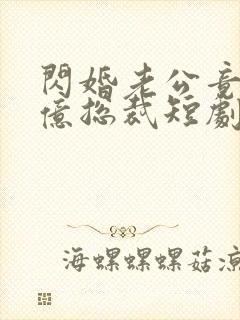 閃婚老公竟
億総裁短劇
海螺螺螺菇涼